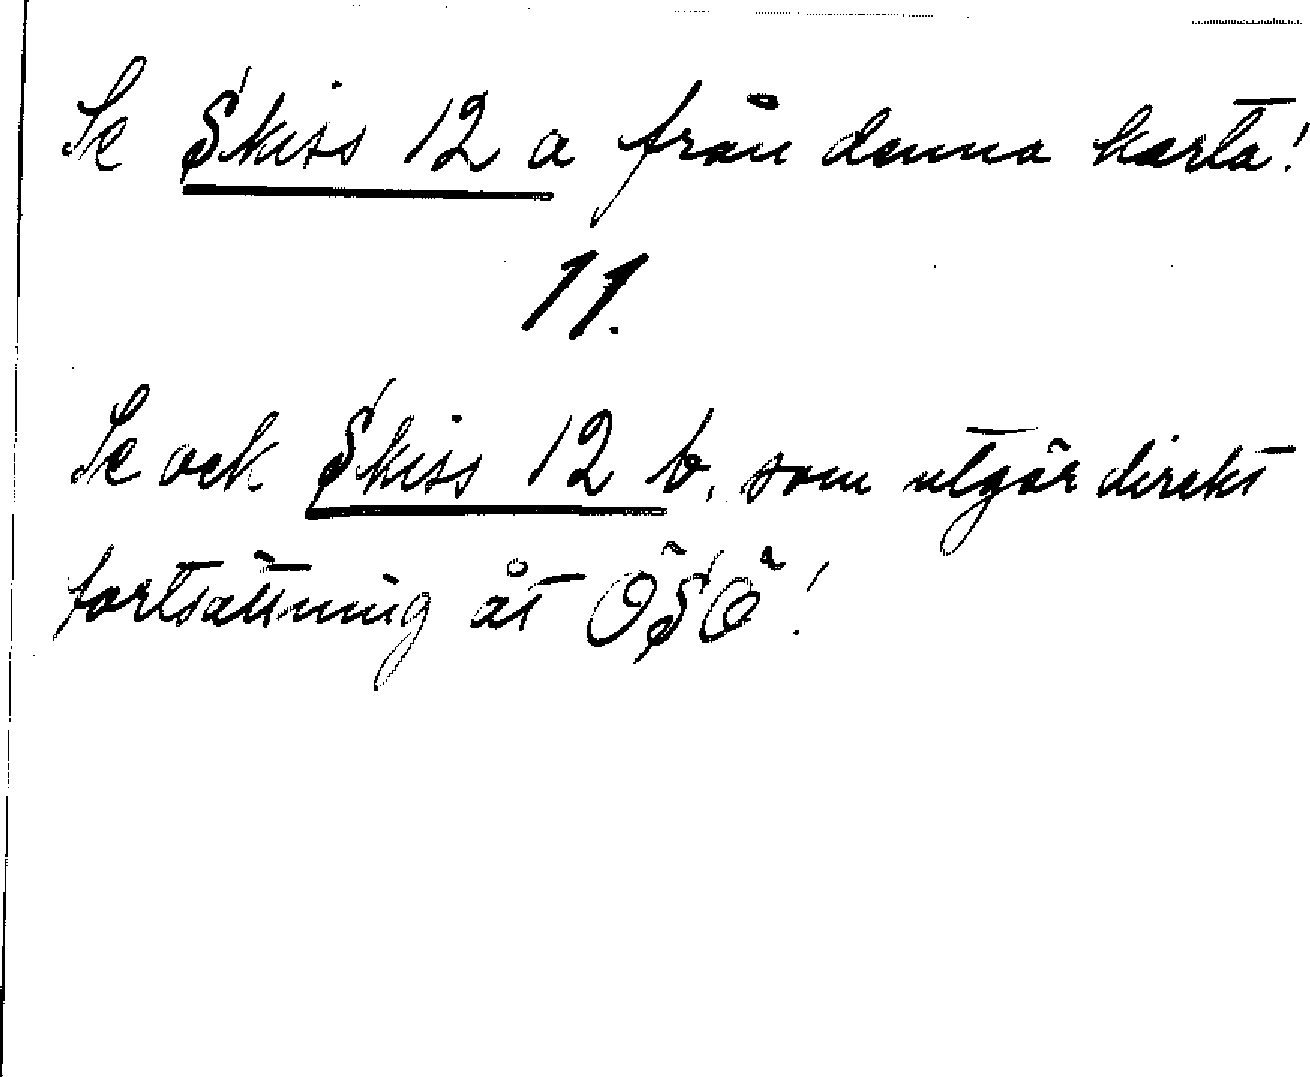 Se Skiss 12 a från denna karta!
11.
Se ock Skiss 12 b, som utgör direkt
fortsättning åt ÖSÖ!